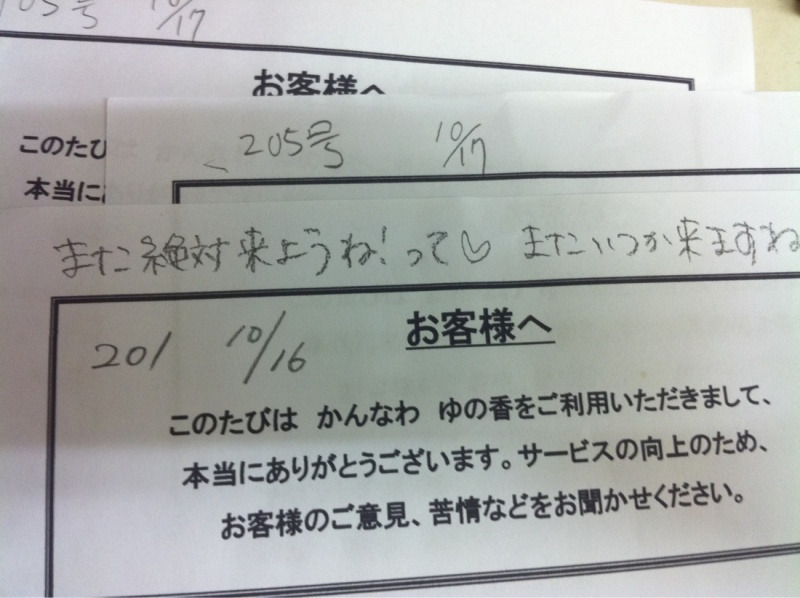 105号 10/17
お客様へ
このたび
本当にあ
205号 10/17
また絶対来ようね!って♡ またいつか来ますね
201 10/16 お客様へ
このたびは かんなわ ゆの香をご利用いただきまして、
本当にありがとうございます。サービスの向上のため、
お客様のご意見、苦情などをお聞かせください。